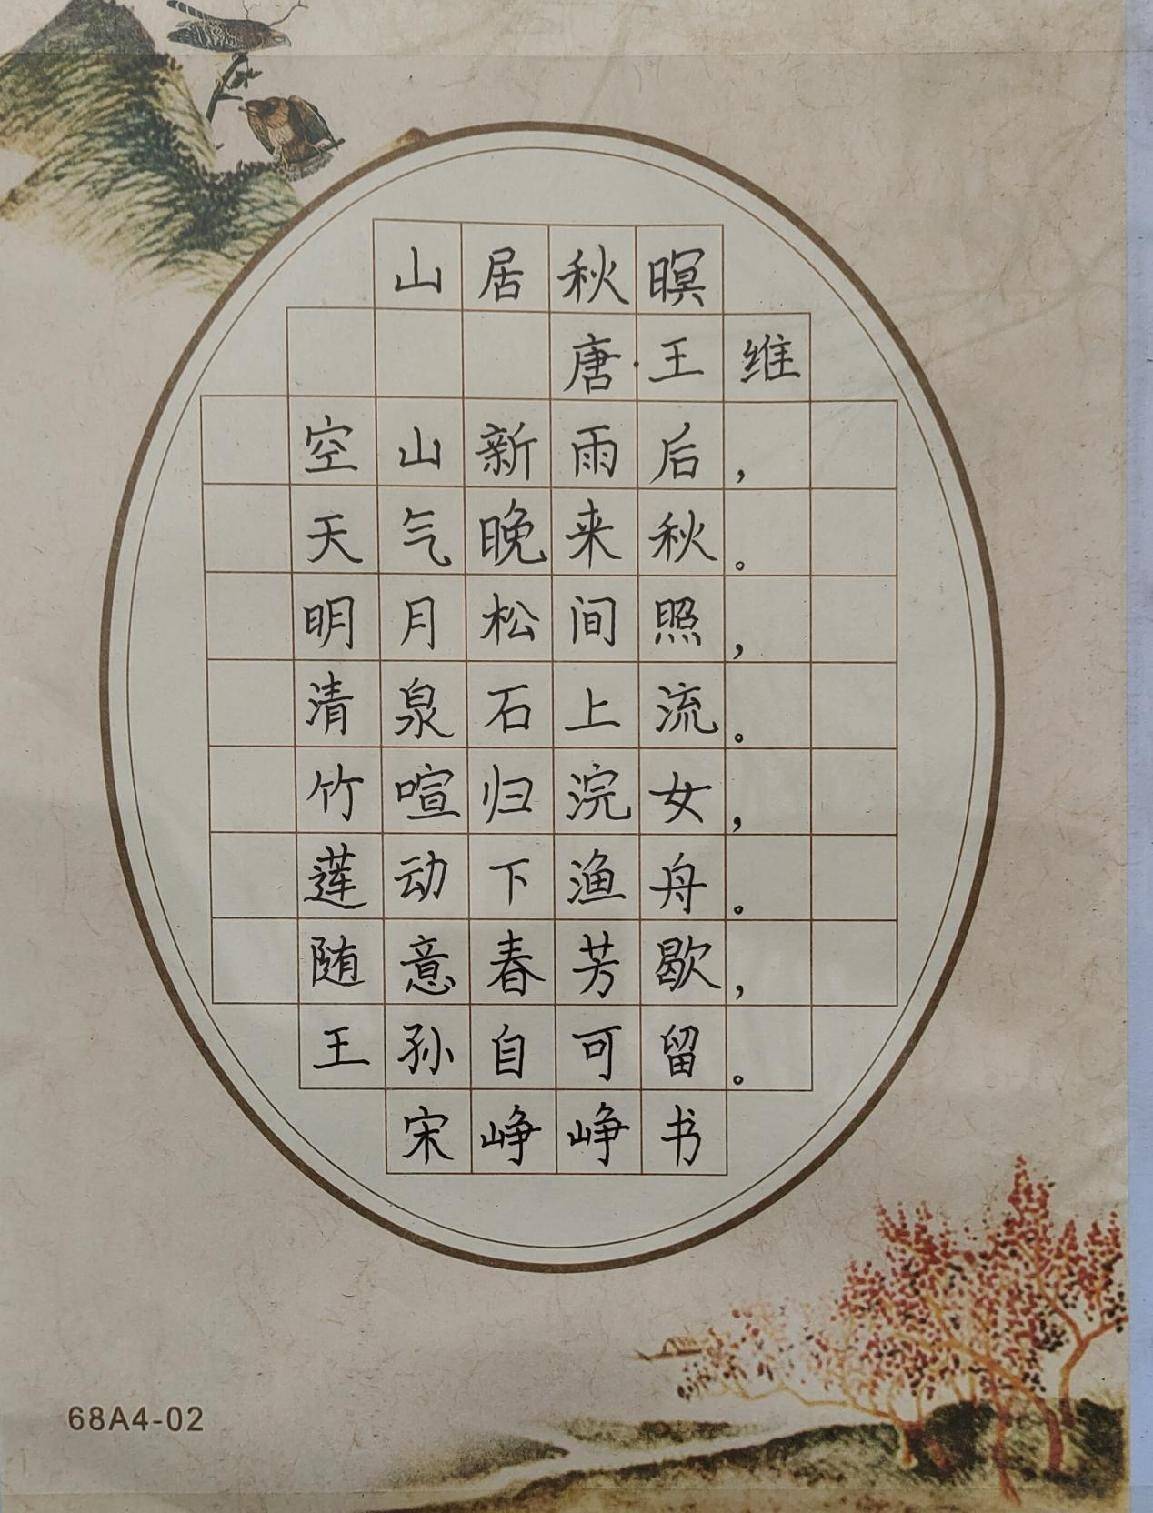 山居秋暝
唐·王维
空山新雨后，
天气晚来秋。
明月松间照，
清泉石上流。
竹喧归浣女，
莲动下渔舟。
随意春芳歇，
王孙自可留。
宋峥峥书
68A4-02